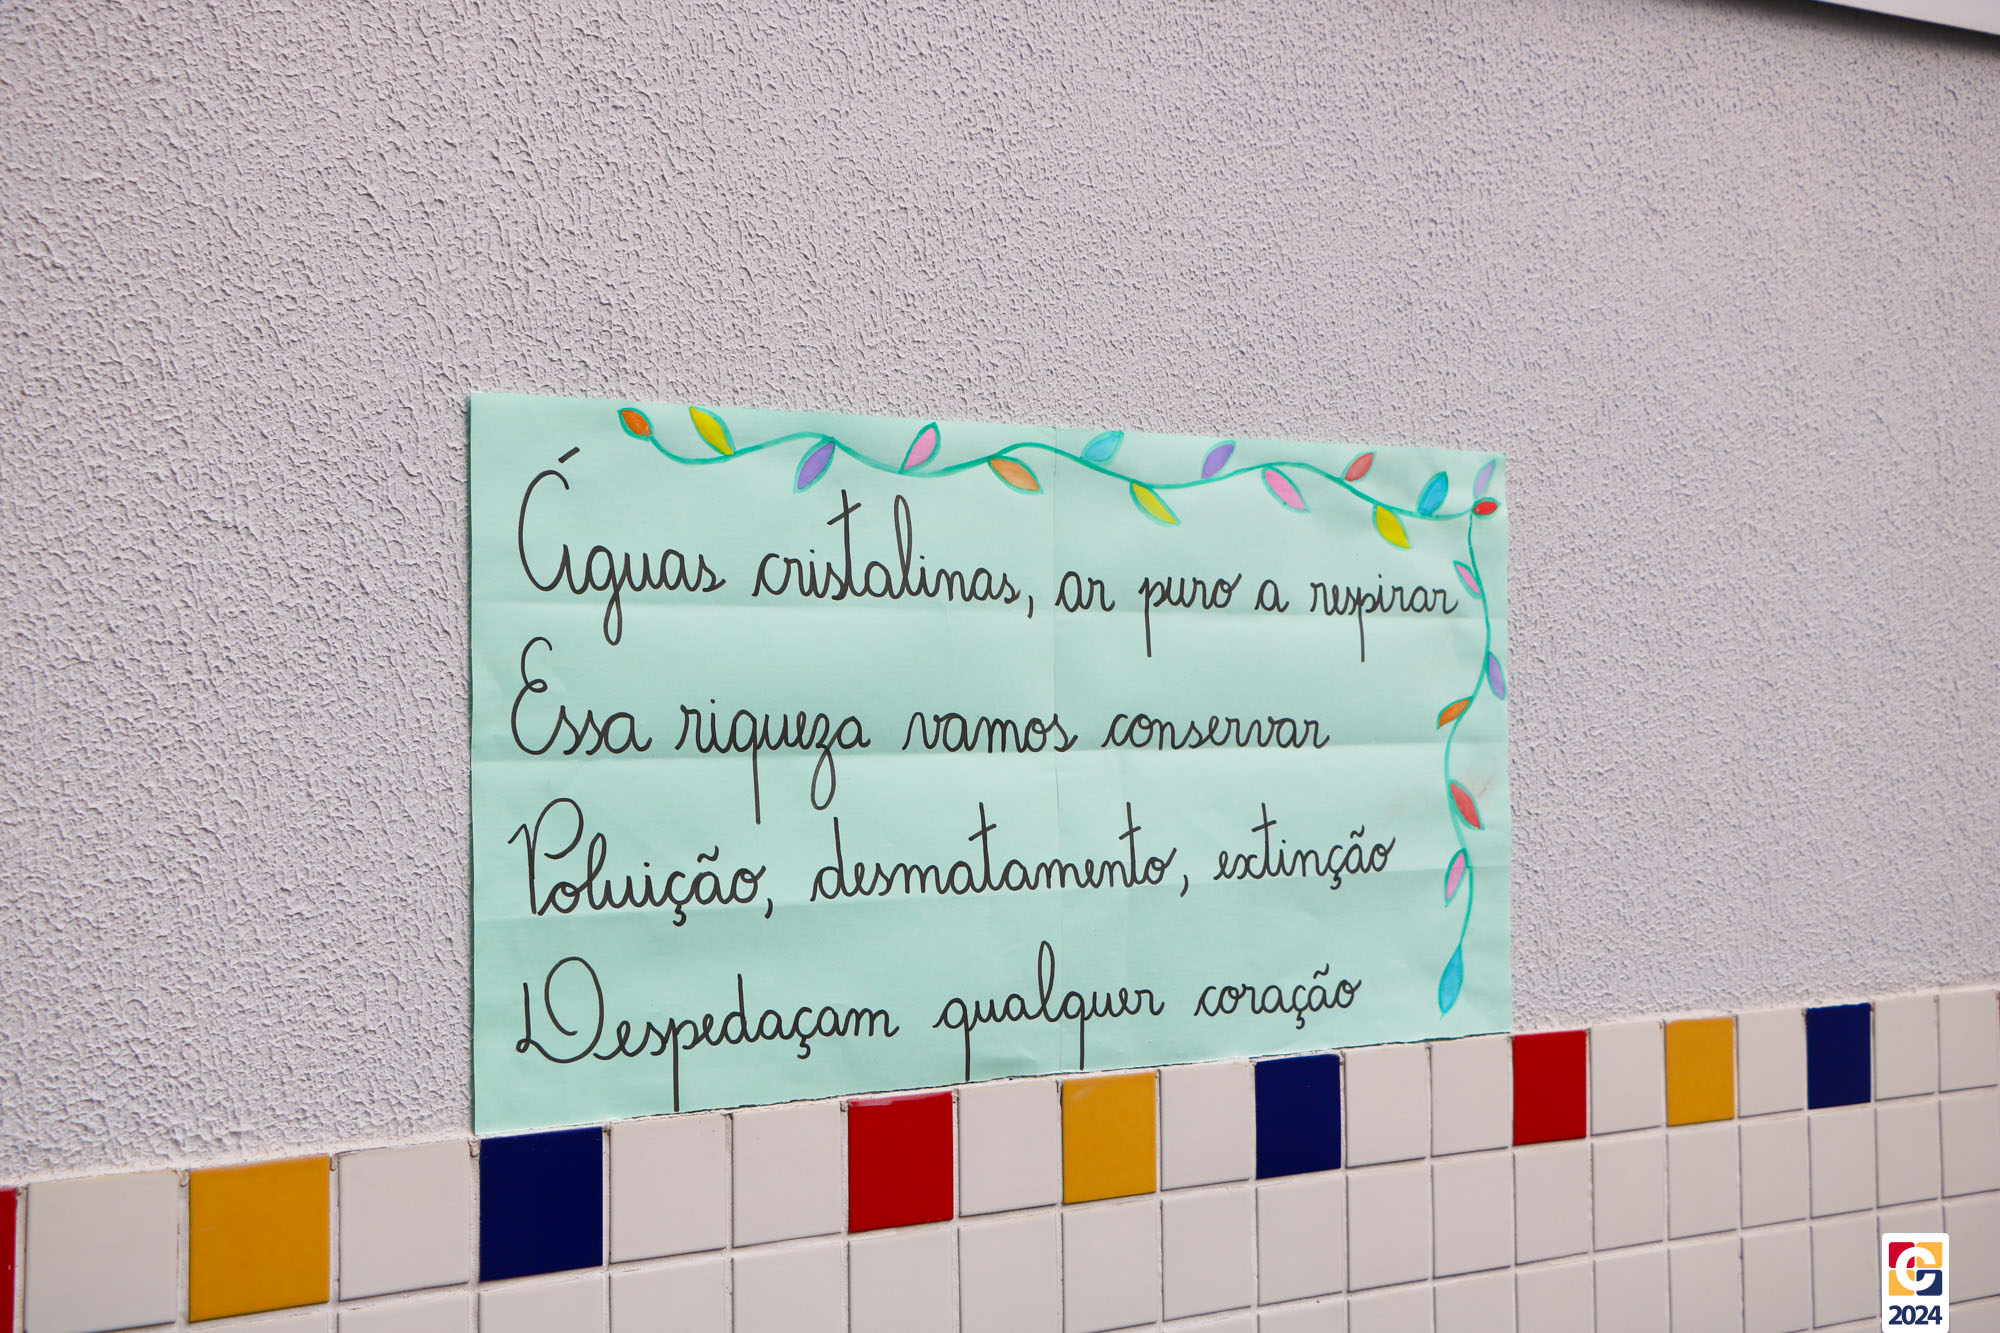 Águas cristalinas, ar puro a respirar
Essa riqueza vamos conservar
Poluição, desmatamento, extinção
Despedaçam qualquer coração
C
2024